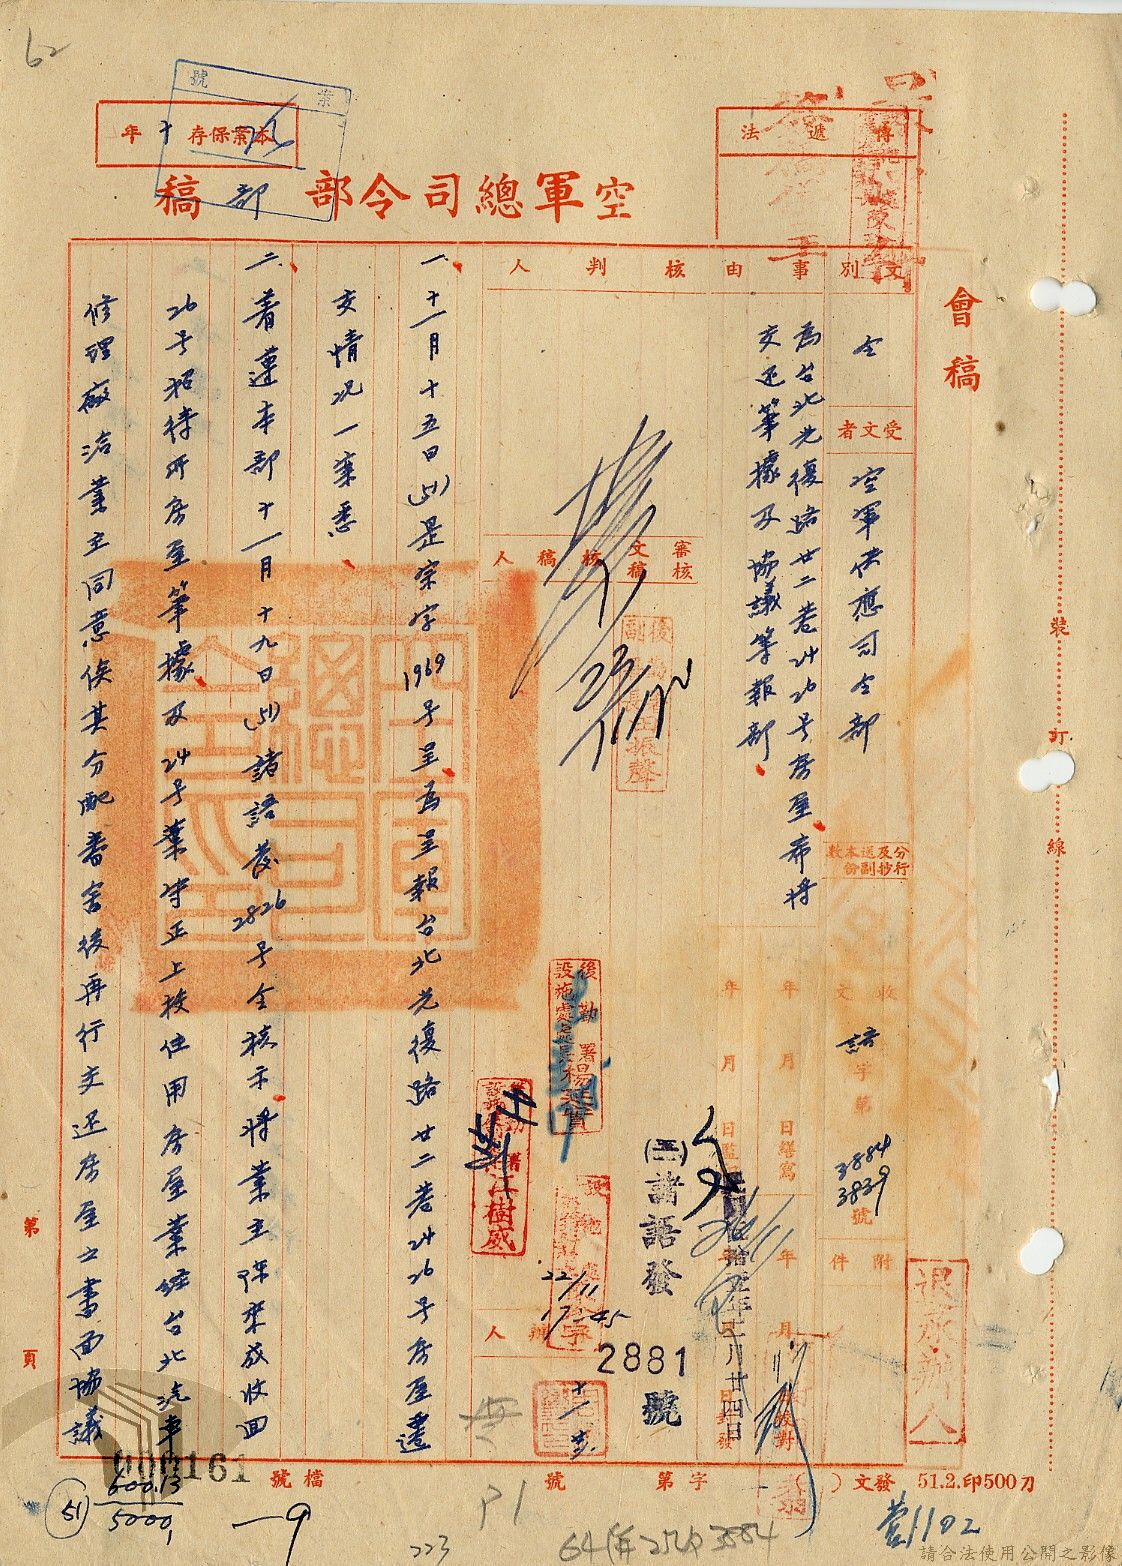 62
案號
本案保存十年
空軍總司令部
部稿
傳遞法
會稿
文別
令
受文者
空軍供應司令部
分行及抄送副本份數
收文
語字第3884 3839號
附件
事由
為台北光復路廿二巷24 26号房屋希將
交还筆據及協議等報部
核判人
審核
核文稿
核稿人
23/11
一、十一月十五日(51)是崇字1969号呈為呈報台北光復路廿二巷24 26号房屋遷
交情况一案悉
二、着遵本部十一月十九日(51)諸語發2826号令核示將業主陳來成收回
26号招待所房屋筆據及24号葉守正上校住用房屋業經台北汽車
修理廠洽業主同意俟其分配眷舍後再行交还房屋之書面協議
後勤署
設施處處長楊
江樹威
振聲
22/11
17-45
年月日繕寫
年月日監印
年月日校對
年月日封發
(三)諸語發
2881號
二月廿四日
退承辦人
裝訂線
第頁
000161
檔號
字第號
發文( )
51.2.印500刀
600.13
5000.1
(51)
一9
223
P1
3884
营1102
請合法使用公開之影像